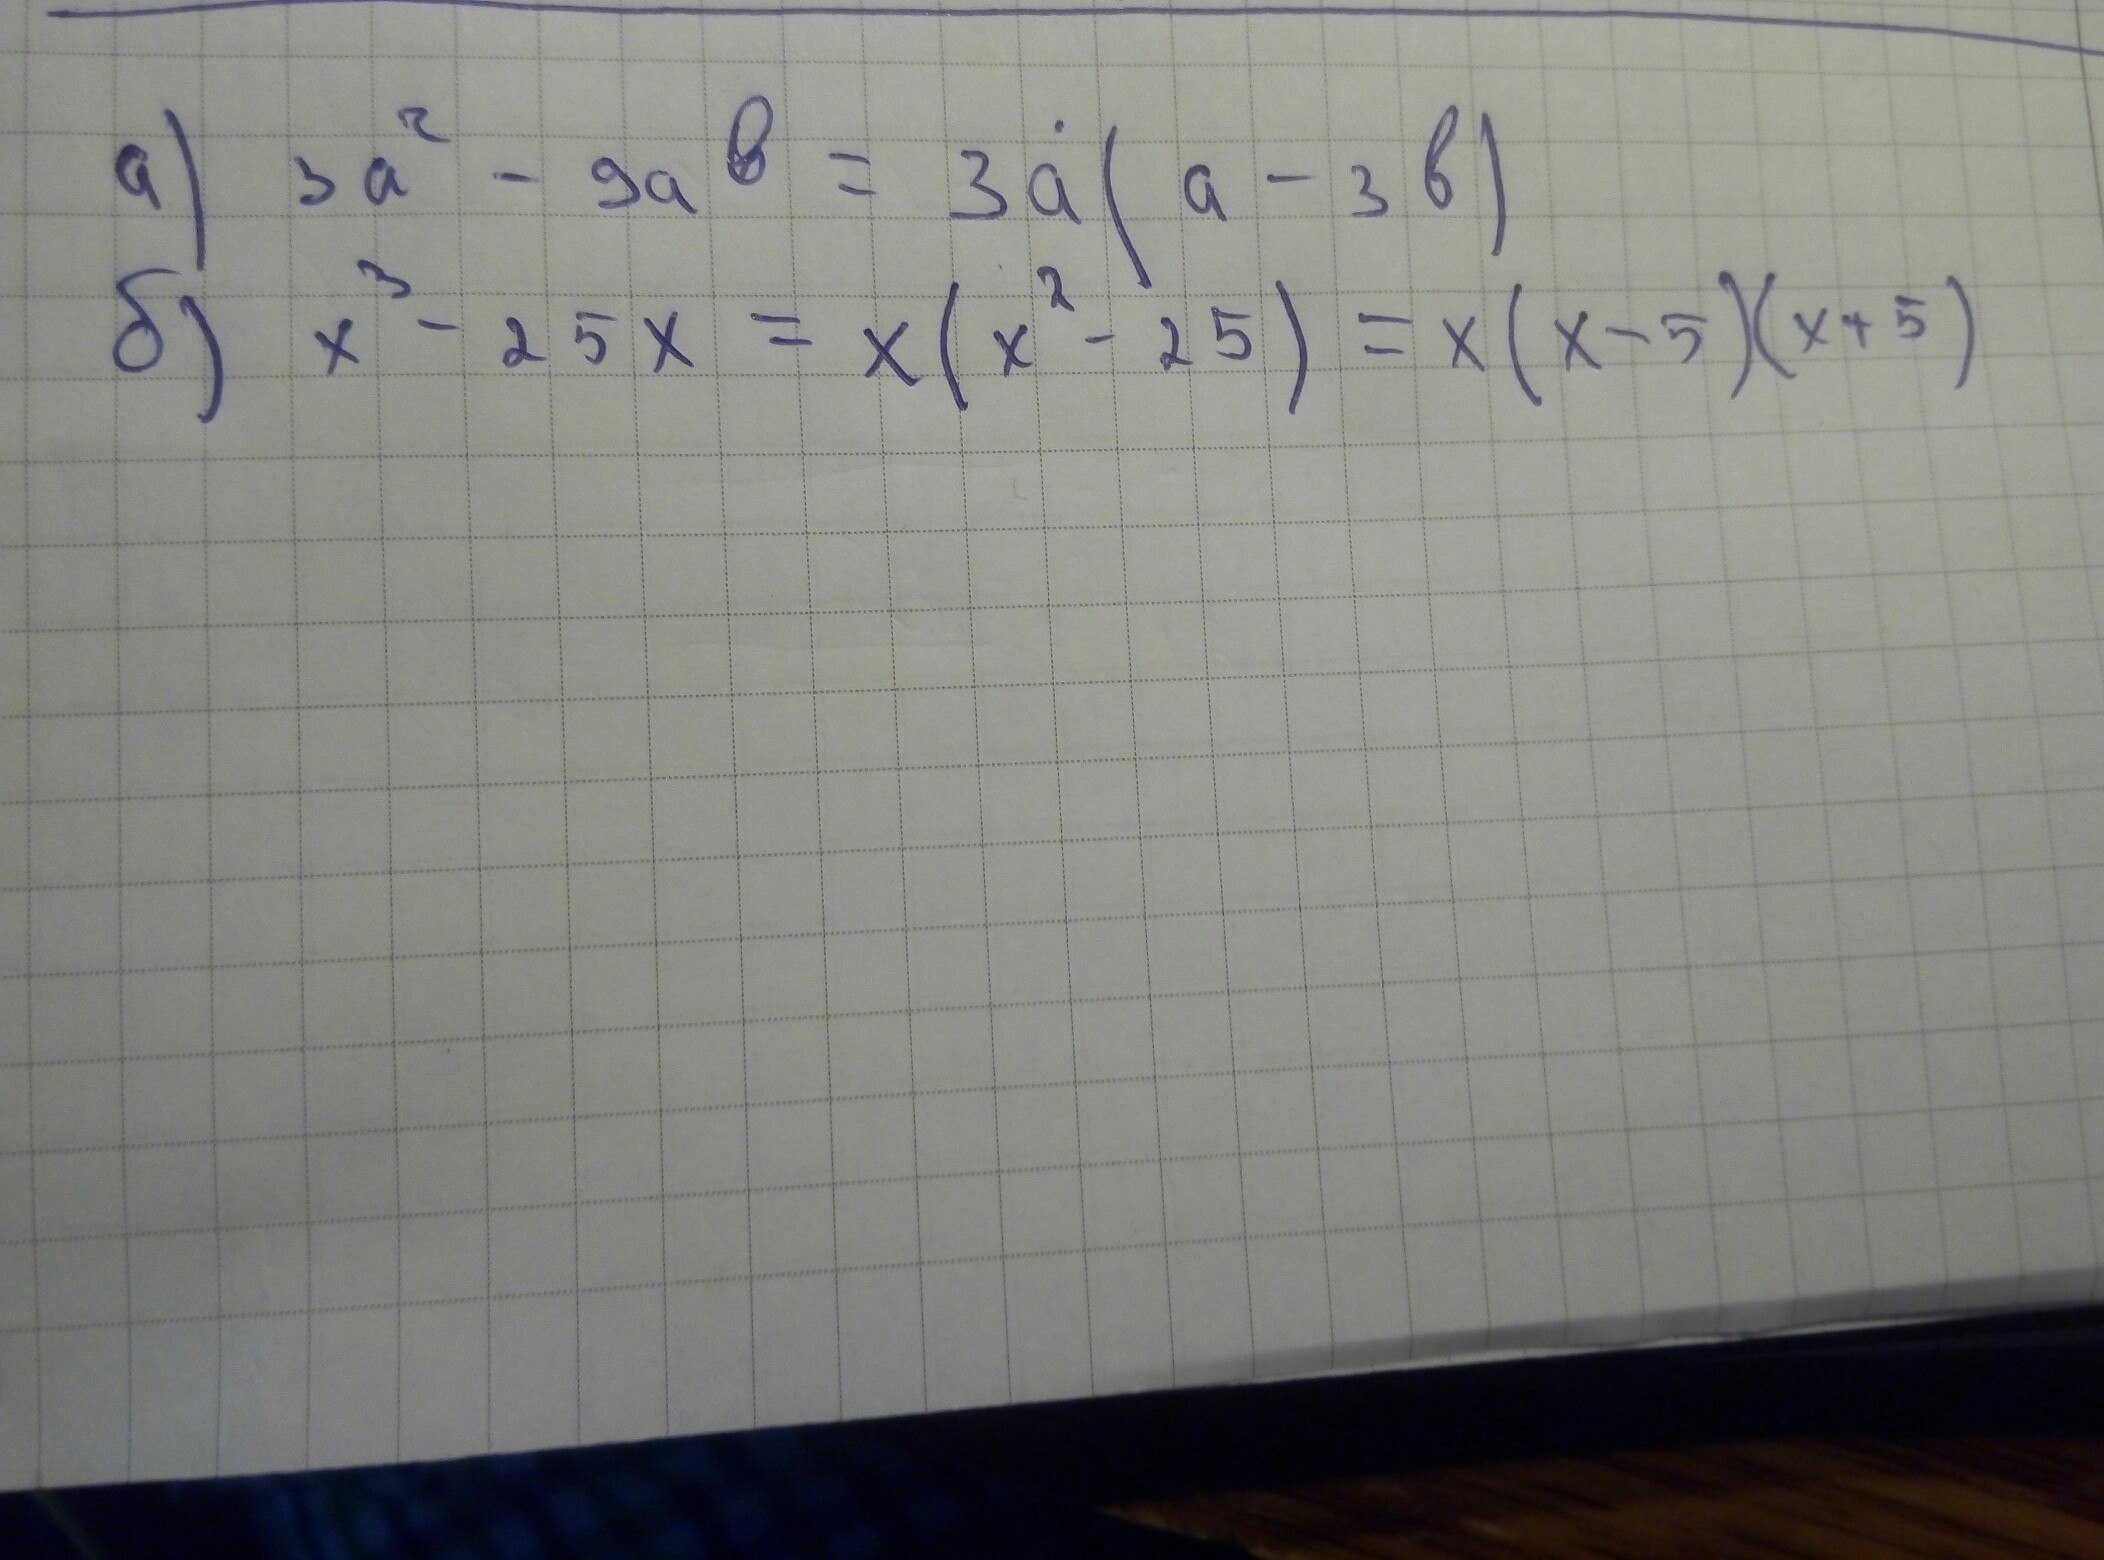 а) 3a² - 9ab = 3a(a - 3b)
б) x³ - 25x = x(x² - 25) = x(x - 5)(x + 5)